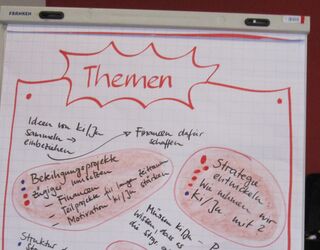 FRANKEN
Themen
Ideen von Ki/Ju
sammeln →
einbeziehen
→ Finanzen dafür
schaffen
Beteiligungsprojekte
zügiger umsetzen
- Finanzen
- Teilprojekte für langen Zeitraum
Motivation Ki/Ju stärken
Strategie
entwickeln
Wie nehmen wir
Ki/Ju mit?
Müssen Ki/Ju -
wissen, dass es